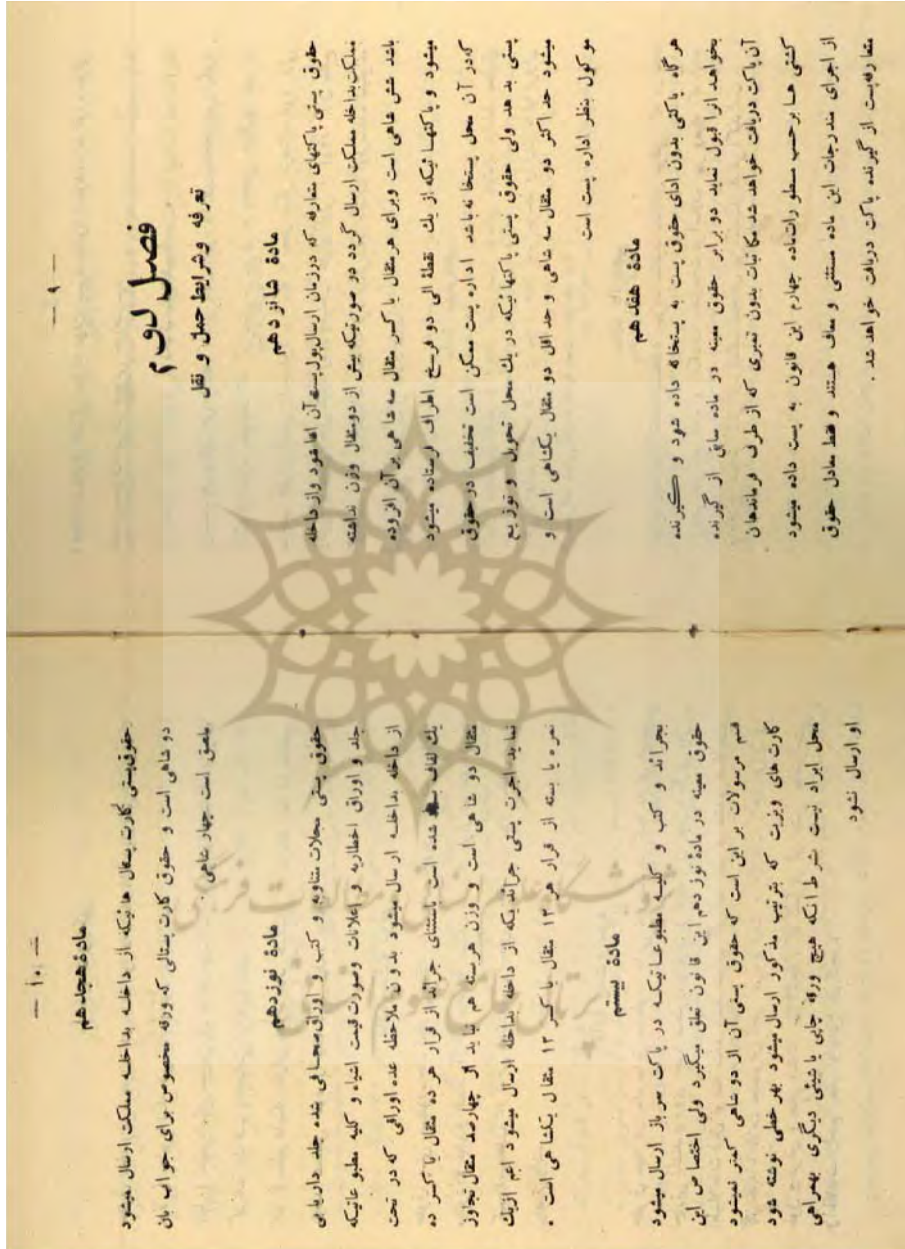 — ۹ —
فصل دوم
تعرفه وشرایط حمل و نقل
مادهٔ شانزدهم
حقوق پستی پاکتهای متعارفه که درزمان ارسال‌پول‌پست‌آن اداشود وازداخله
مملکت‌بداخله مملکت ارسال گردد در صورتیکه بیش از دومثقال وزن نداشته
باشد شش شاهی است وبرای هرمثقال یا کسر مثقال سه شاهی برآن افزوده
میشود و پاکتهـا ئیکه از یك نقطهٔ الی دو فرسخ اطراف فرستاده میشود
که‌در آن محل پستخا نه‌باشد اداره پست ممکن است تخفیف درحقوق
پستی بد هد ولی حقوق پستی پاکتها ئیکه در یك محل تحویل و توز یع
میشود حد اکثر دو مثقال سه شاهی و حد اقل دو مثقال یکشاهی است و
موکول بنظر اداره پست است
مادهٔ هفدهم
هرگاه پاکتی بدون ادای حقوق پست به پستخانه داده شود و گیرنده
بخواهد انرا قبول نماید دو برابر حقوق معینه در ماده سابق از گیرنده
آن‌پاکت دریافت خواهد شد مکاتبات بدون تمبری که از طرف فرماندهان
کشتی هـا برحسب مسطورات‌ماده چهارم این قانون به پست داده میشود
از اجرای مندرجات این ماده مستثنی و معاف هستند و فقط معادل حقوق
متعارفه‌پست از گیرنده پاکت دریافت خواهد شد .
— ۱۰ —
مادهٔ‌هجدهم
حقوق‌پستی کارت پستال هائیکه از داخلـه بداخلـه مملکت ارسال میشود
دو شاهی است و حقوق کارت پستالی که ورقه مخصوص برای جواب بان
ملصق است چهار شاهی.
مادهٔ نوزدهم
حقوق پستی مجلات متناوبه و کتب و اوراق‌صحـا فی شده جلد داریابی
جلد و اوراق اخطاریه و اعلانات وصورت قیمت اشیاء و کلیه مطبو عاتیکه
از داخله بداخلـه ارسال میشود بدون ملاحظه عده اوراقی که در تحت
یك لفاف بسته شده است باستثنای جرائد از قرار هرده مثقال یا کسر ده
مثقال دو شاهی است و وزن هربسته هم نباید از چهارصد مثقال‌تجاوز
نماید اجرت پستی جرائدیکه از داخله بداخله ارسال میشود اعم ازیك
نمره یا بسته از قرار هر ۱۳ مثقال یا کسر ۱۳ مثقال یکشاهی است .
مادهٔ بیستم
بجرائد و کتب و کلیـه مطبوعـاتیکـه در پاکت سرباز ارسال میشود
حقوق معینه در مادهٔ نوزدهم این قانون تعلق میگیرد ولی اختصاص این
قسم مرسولات بر این است که حقوق پستی آن از دوشاهی کمتر نمیشود
کارت های ویزیت که بترتیب مذکور ارسال میشود بهرخطی نوشته شود
محل ایراد نیست شرط انکه هیچ ورقه چاپی یاشیئی دیگری بهمراهی
او ارسال نشود